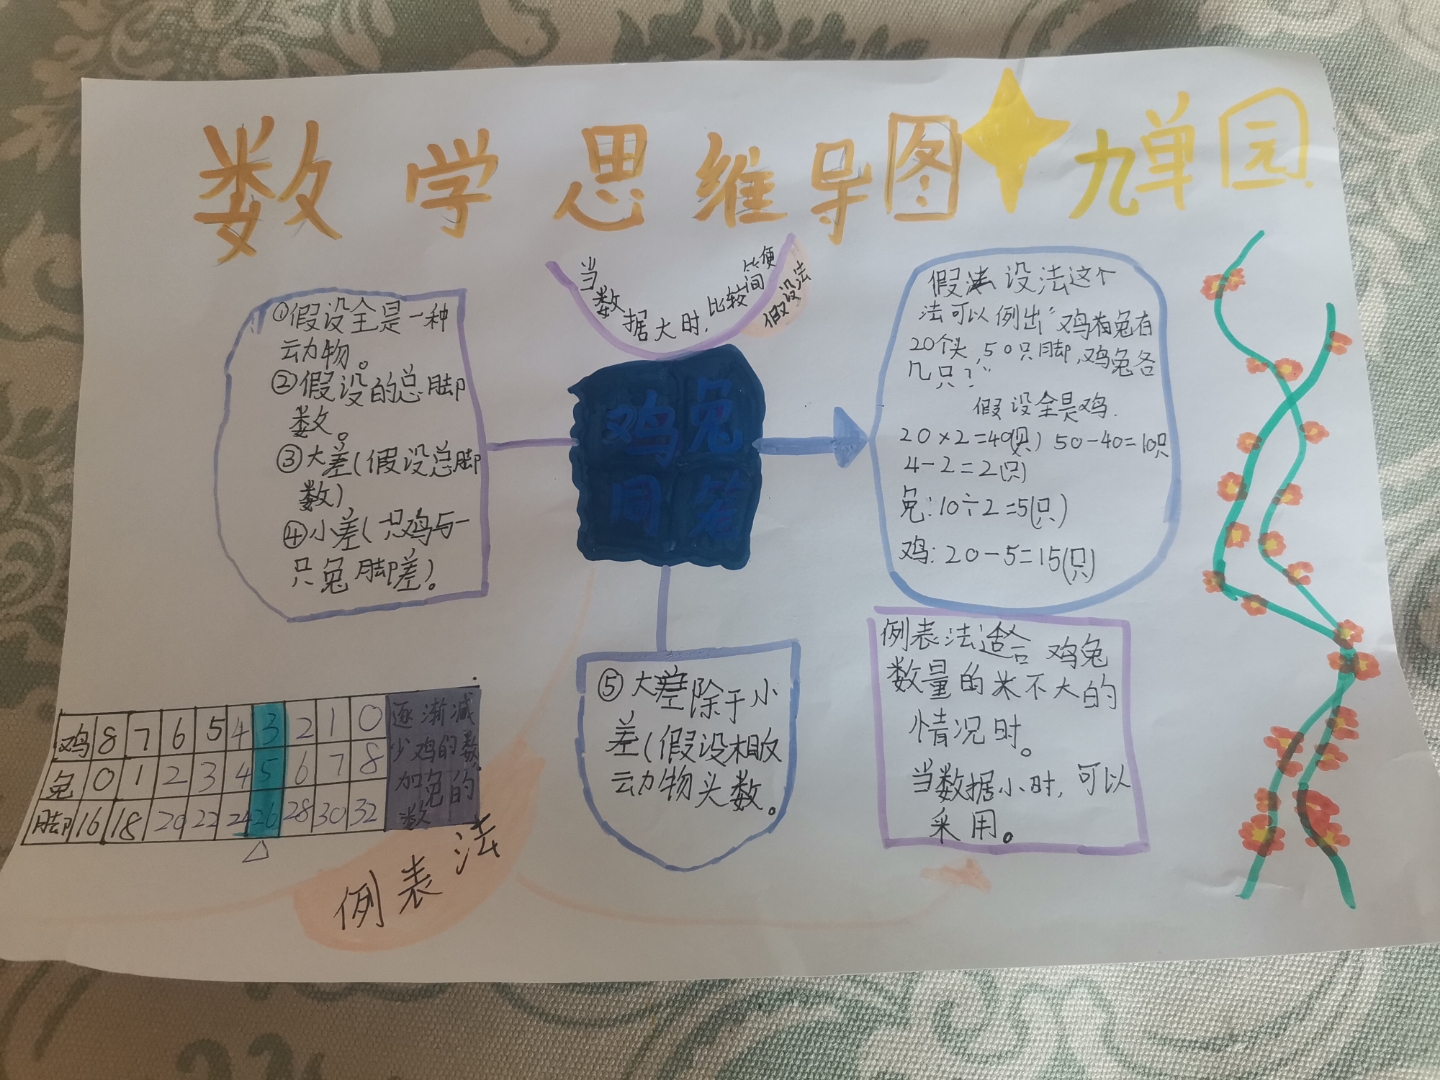 数学思维导图 九单园
当数据大时,比较简便
假设法
①假设全是一种
动物。
②假设的总脚
数。
③大差(假设总脚
数)
④小差(一只鸡与一
只兔脚差)。
鸡兔
同笼
假设法这个
法可以例出“鸡有兔有
20个头,50只脚,鸡兔各
几只?”
假设全是鸡.
20×2=40(只) 50-40=10只
4-2=2(只)
兔:10÷2=5(只)
鸡:20-5=15(只)
⑤大差除于小
差(假设相反
动物头数。
例表法适合鸡兔
数量的米不大的
情况时。
当数据小时,可以
采用。
鸡 8 7 6 5 4 3 2 1 0
兔 0 1 2 3 4 5 6 7 8
脚 16 18 20 22 24 26 28 30 32
逐渐减
少鸡的数
加兔的
数
例表法